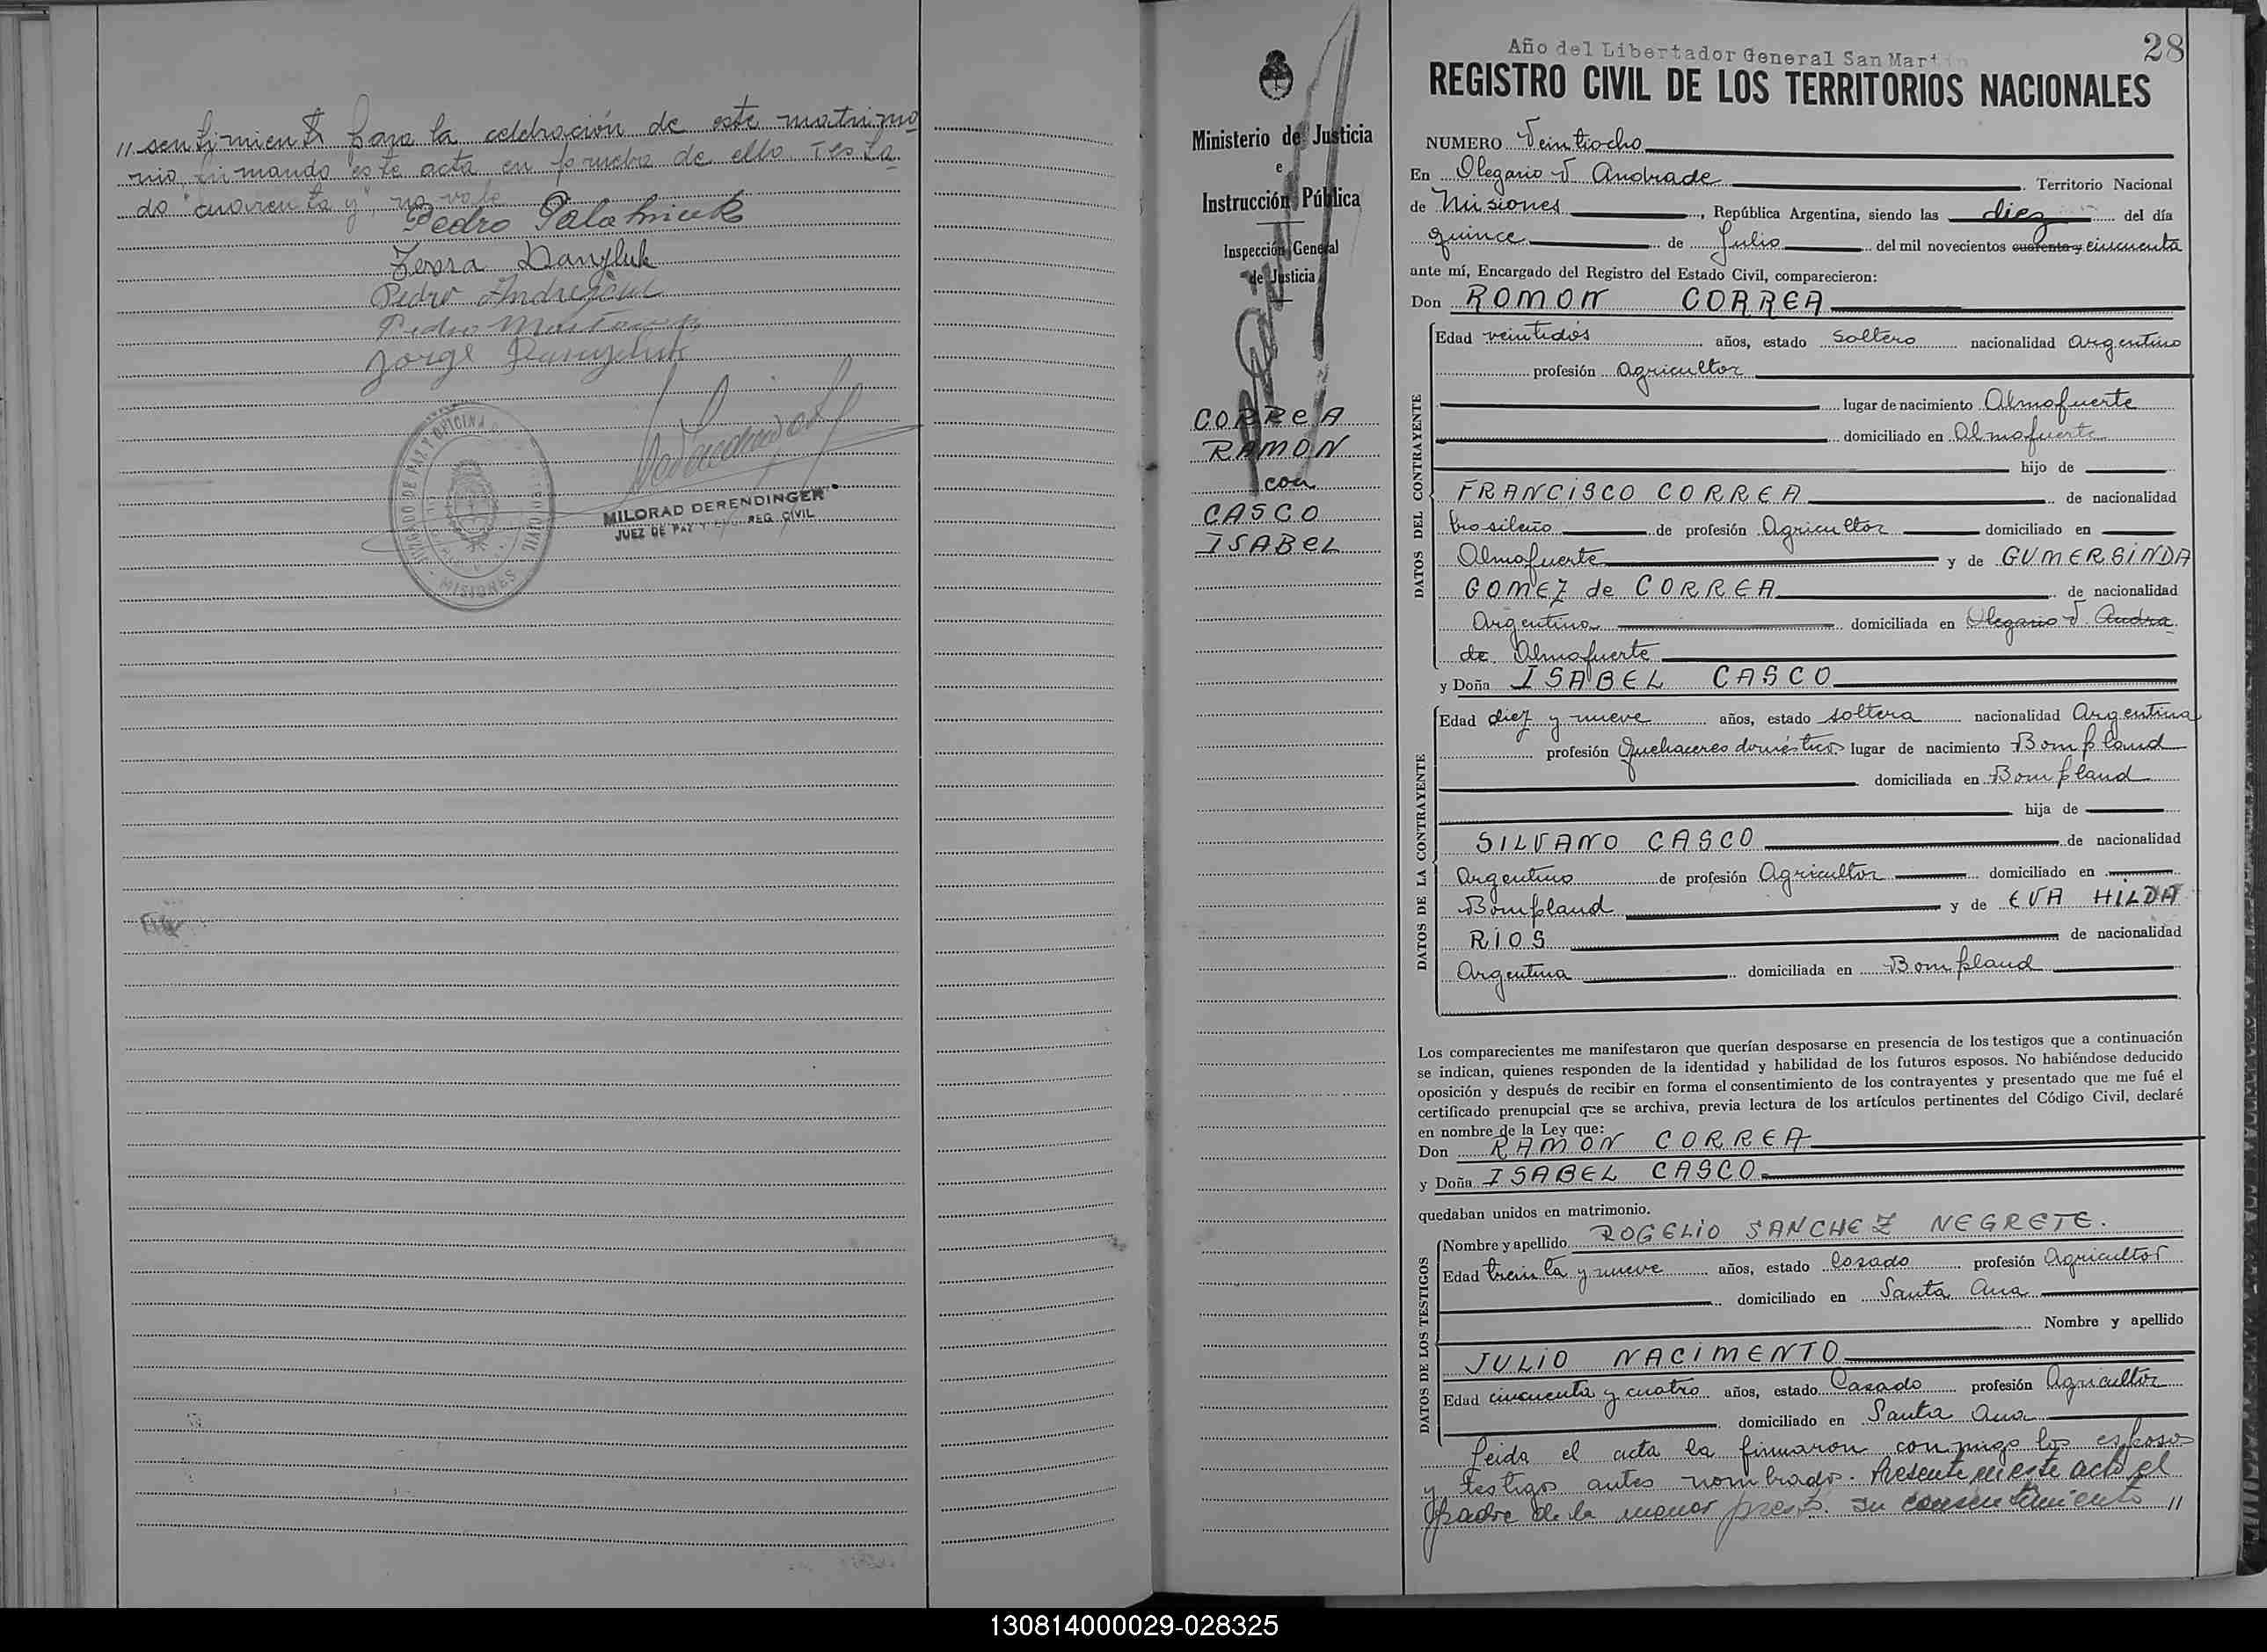 // sentimiento para la celebración de este matrimo
nio, firmando este acta en prueba de ello. Testa
do "cuarenta y", no vale
Pedro Palahniuk
Danyluk
Pedro
Pedro
Jorge Danyluk
JUZGADO DE PAZ Y OFICINA
MISIONES
MILORAD DERENDINGER
JUEZ DE PAZ Y REG. CIVIL
Ministerio de Justicia
e
Instrucción Pública
Inspección General
de Justicia
CORREA
RAMON
con
CASCO
ISABEL
Año del Libertador General San Martin
28
REGISTRO CIVIL DE LOS TERRITORIOS NACIONALES
NUMERO Veintiocho
En Olegario V. Andrade Territorio Nacional
de Misiones, República Argentina, siendo las diez del día
quince de Julio del mil novecientos cuarenta y cincuenta
ante mí, Encargado del Registro del Estado Civil, comparecieron:
Don ROMON CORREA
DATOS DEL CONTRAYENTE
Edad veintidós años, estado soltero nacionalidad Argentino
profesión Agricultor
lugar de nacimiento Almafuerte
domiciliado en Almafuerte
hijo de
FRANCISCO CORREA de nacionalidad
brasileño de profesión Agricultor domiciliado en
Almafuerte y de GUMERSINDA
GOMEZ de CORREA de nacionalidad
Argentina domiciliada en Olegario V. Andra
de Almafuerte
y Doña ISABEL CASCO
DATOS DE LA CONTRAYENTE
Edad diez y nueve años, estado soltera nacionalidad Argentina
profesión Quehaceres domésticos lugar de nacimiento Bompland
domiciliada en Bompland
hija de
SILVANO CASCO de nacionalidad
Argentino de profesión Agricultor domiciliado en
Bompland y de EVA HILDA
RIOS de nacionalidad
Argentina domiciliada en Bompland
Los comparecientes me manifestaron que querían desposarse en presencia de los testigos que a continuación
se indican, quienes responden de la identidad y habilidad de los futuros esposos. No habiéndose deducido
oposición y después de recibir en forma el consentimiento de los contrayentes y presentado que me fué el
certificado prenupcial que se archiva, previa lectura de los artículos pertinentes del Código Civil, declaré
en nombre de la Ley que:
Don RAMON CORREA
y Doña ISABEL CASCO
quedaban unidos en matrimonio.
DATOS DE LOS TESTIGOS
Nombre y apellido ROGELIO SANCHEZ NEGRETE.
Edad treinta y nueve años, estado Casado profesión Agricultor
domiciliado en Santa Ana
Nombre y apellido
JULIO NACIMENTO
Edad cincuenta y cuatro años, estado Casado profesión Agricultor
domiciliado en Santa Ana
Leida el acta la firmaron conmigo los esposos
y testigos antes nombrados. Presente en este acto el
padre de la menor prestó su consentimiento //
130814000029-028325